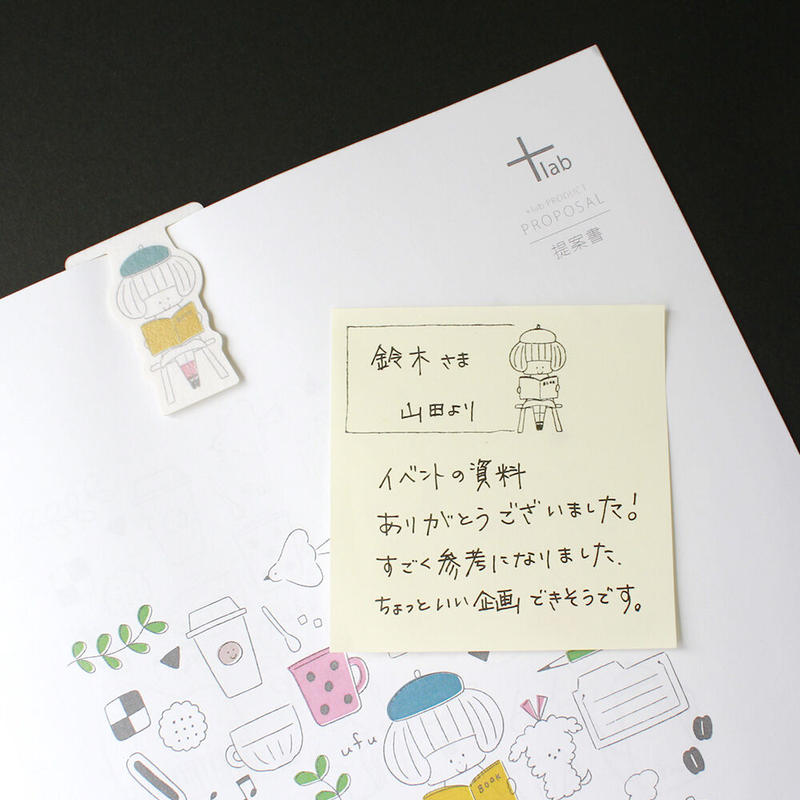 +lab
+lab PRODUCT
PROPOSAL
提案書
鈴木さま
山田より
BOOK
イベントの資料
ありがとうございました!
すごく参考になりました、
ちょっといい企画できそうです。
ufu
BOOK